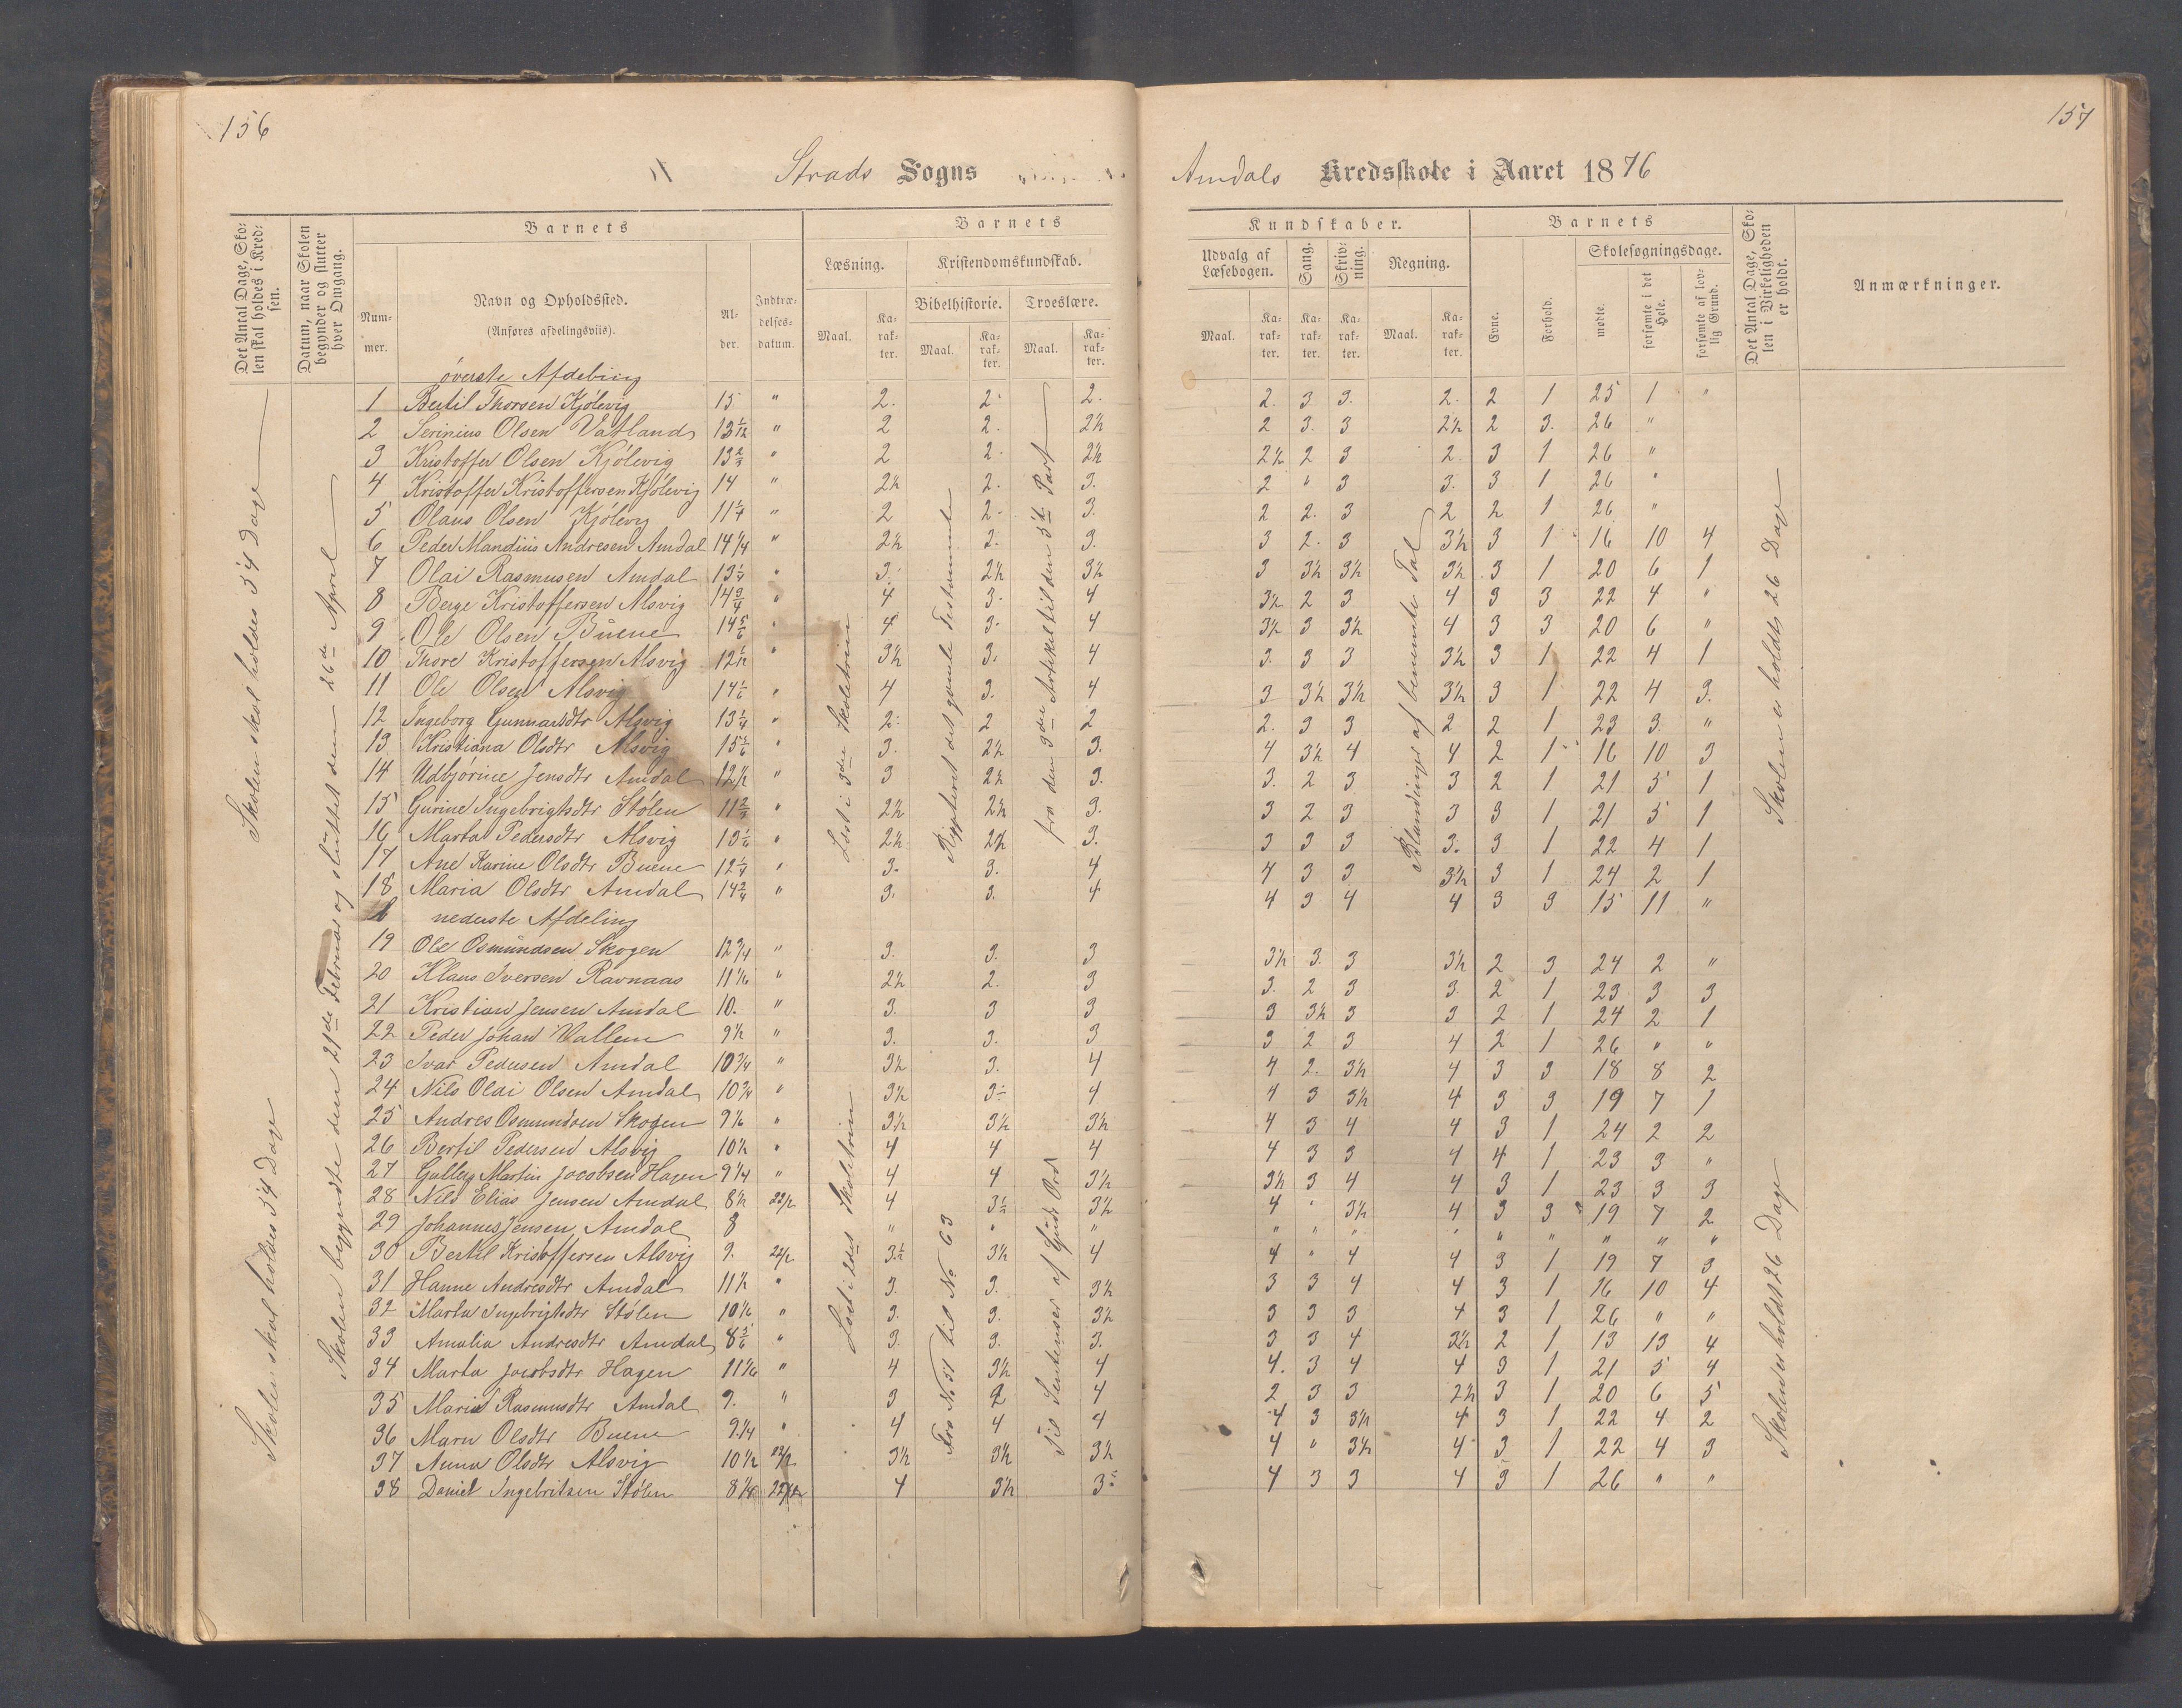 156
Strads Sogns
Det Antal Dage, Skolen skal holdes i Kredsen.
Datum, naar Skolen begynder og slutter hver Omgang.
Barnets
Nummer.
Navn og Opholdssted.
(Anføres afdelingsviis).
Alder.
Indtrædelsesdatum.
Barnets
Læsning.
Kristendomskundskab.
Bibelhistorie.
Troeslære.
Maal.
Karakter.
Maal.
Karakter.
Maal.
Karakter.
øverste Afdeling
1 Bertil Thorsen Kjølevig 15 " 2. 2. 2.
2 Serinius Olsen Vatland 13 1/12 " 2 2. 2½
3 Kristoffer Olsen Kjølevig 13 2/3 " 2 2. 2½
4 Kristoffer Kristoffersen Kjølevig 14 " 2½ 2. 3.
5 Olaus Olsen Kjølevig 11 1/4 " 2 2. 3.
6 Peder Mandius Andresen Amdal 14 1/4 " 2½ 2. 3.
7 Olai Rasmusen Amdal 13 1/4 " 3. 2½ 3½
8 Berge Kristoffersen Alsvig 14 3/4 " 4 3. 4
9 Ole Olsen Buene 14 5/6 " 4 3. 4
10 Thore Kristoffersen Alsvig 12 1/12 " 3½ 3. 4
11 Ole Olsen Alsvig 14 1/6 " 4 3. 4
12 Ingeborg Gunnarsdtr Alsvig 13 1/4 " 2. 2 2
13 Kristiana Olsdtr Alsvig 15 5/6 " 3. 2½ 3.
14 Udbjørine Jensdtr Amdal 12½ " 3 2½ 3.
15 Gurine Ingebrigtsdtr Stølen 11 2/3 " 2½ 2½ 3.
16 Marta Pedersdtr Alsvig 13 1/6 " 2½ 2½ 3.
17 Ane Karine Olsdtr Buene 12 1/4 " 3. 3. 4
18 Maria Olsdtr Amdal 14 2/4 " 3. 3. 4
nederste Afdeling
19 Ole Osmundsen Skogen 12 3/4 " 3. 3. 3
20 Klaus Iversen Ravnaas 11 1/6 " 2½ 2. 3
21 Kristian Jensen Amdal 10. " 3. 3 3
22 Peder Johan Vallem 9½ " 3. 3. 3
23 Ivar Pedersen Amdal 10 3/4 " 3½ 3. 4
24 Nils Olai Olsen Amdal 10 3/4 " 3½ 3 4
25 Andres Osmundsen Skogen 9 1/6 " 3½ 3½ 3½
26 Bertil Pedersen Alsvig 10½ " 4 4 4
27 Gulleg Martin Jacobsen Hagen 9 1/4 " 4 4 3½
28 Nils Elias Jensen Amdal 8½ 22/2 4 3½ 3½
29 Johannes Jensen Amdal 8 " " "
30 Bertil Kristoffersen Alsvig 9. 22/2 3½ 3½ 4
31 Hanne Andresdtr Amdal 11½ " 3. 3. 3½
32 Marta Ingebrigtsdtr Stølen 10 1/6 " 3. 3. 3½
33 Amalia Andresdtr Amdal 8 5/6 " 3. 3. 3.
34 Marta Jacobsdtr Hagen 11 1/6 " 4 3½ 4
35 Maria Rasmusdtr Amdal 9. " 3 2 4
36 Marn Olsdtr Buene 9 1/4 " 4 4 4
37 Anna Olsdtr Alsvig 10½ 22/2 3½ 3½ 3½
38 Daniel Ingebritsen Stølen 8 1/4 22/2 4 3½ 3
Skolen skal holdes 54 Dage
Skolen skal holdes 54 Dage
Skolen begyndte den 21de Februar og sluttet den 26de April
Læst i 3die Skoletrin
Læst i 2det Skoletrin
Repeteret det gamle Testamente
Fra No 51 til No 63
fra den 3die Artikel til den 3die Part
til Sentenser af Guds Ord
157
Amdals Kredsskole i Aaret 1876
Kundskaber.
Udvalg af Læsebogen.
Sang.
Skrivning.
Regning.
Maal.
Karakter.
Karakter.
Karakter.
Maal.
Karakter.
Barnets
Evne.
Forhold.
Skolesøgningsdage.
mødte.
forsømte i det Hele.
forsømte af lovlig Grund.
Det Antal Dage, Skolen i Virkeligheden er holdt.
Anmærkninger.
2. 3 3. 2. 2 1 25 1 "
2 3. 3 2½ 2 3. 26 "
2½ 2 3 2. 3 1 26 "
2 " 3 3. 3 1 26 "
2 2. 3 2 2 1 26 "
3 2. 3 3½ 3 1 16 10 4
3 3½ 3½ 3½ 3 1 20 6 1
3½ 2 3 4 3 3 22 4 "
3½ 3 3½ 4 3 3 20 6 "
3. 3 3 3½ 3 1 22 4 1
3 3½ 3½ 3½ 3 1 22 4 3.
2. 3 3 2 2 1 23 3. "
4 3½ 4 4 2 1 16 10 3
3. 2 3 3 2 1 21 5 1
3 2 3 3 3 1 21 5 1
3 3 3 3. 3 1 22 4 1
4 3 3 3½ 3 1 24 2 1
4 3 4 4 3 3 15 11 "
3½ 3. 3 3½ 2 3 24 2 "
3. 2 3 3. 2 1 23 3 3
3 3½ 3 3 2 1 24 2 1
3 2 3 4 2 1 26 " "
4 2. 3½ 4 3 3 18 8 2
4 3 3½ 4 3 3 19 7 1
4 3 4 4 3 1 24 2 2
4 3 3 4 4 1 23 3 "
3½ 3 4 4 3 1 23 3 3
4 " 3½ 4 3 3 19 7 2
" " " " " " " " "
4 " 4 4 3 1 19 7 3
3 3 4 4 3 1 16 10 4
3 3 3 4 3 1 26 " "
3 3 4 3½ 2 1 13 13 4
4. 3 4 4 3 1 21 5 4
2 3 3 2½ 3 1 20 6 5
4 3 3½ 4 3 1 22 4 2
4 " 3½ 4 3 1 22 4 3
4 3 3 4 3 1 26 " "
Blandinger af benævnte Tal
Skolen er holdt 26 Dage
Skolen er holdt 26 Dage